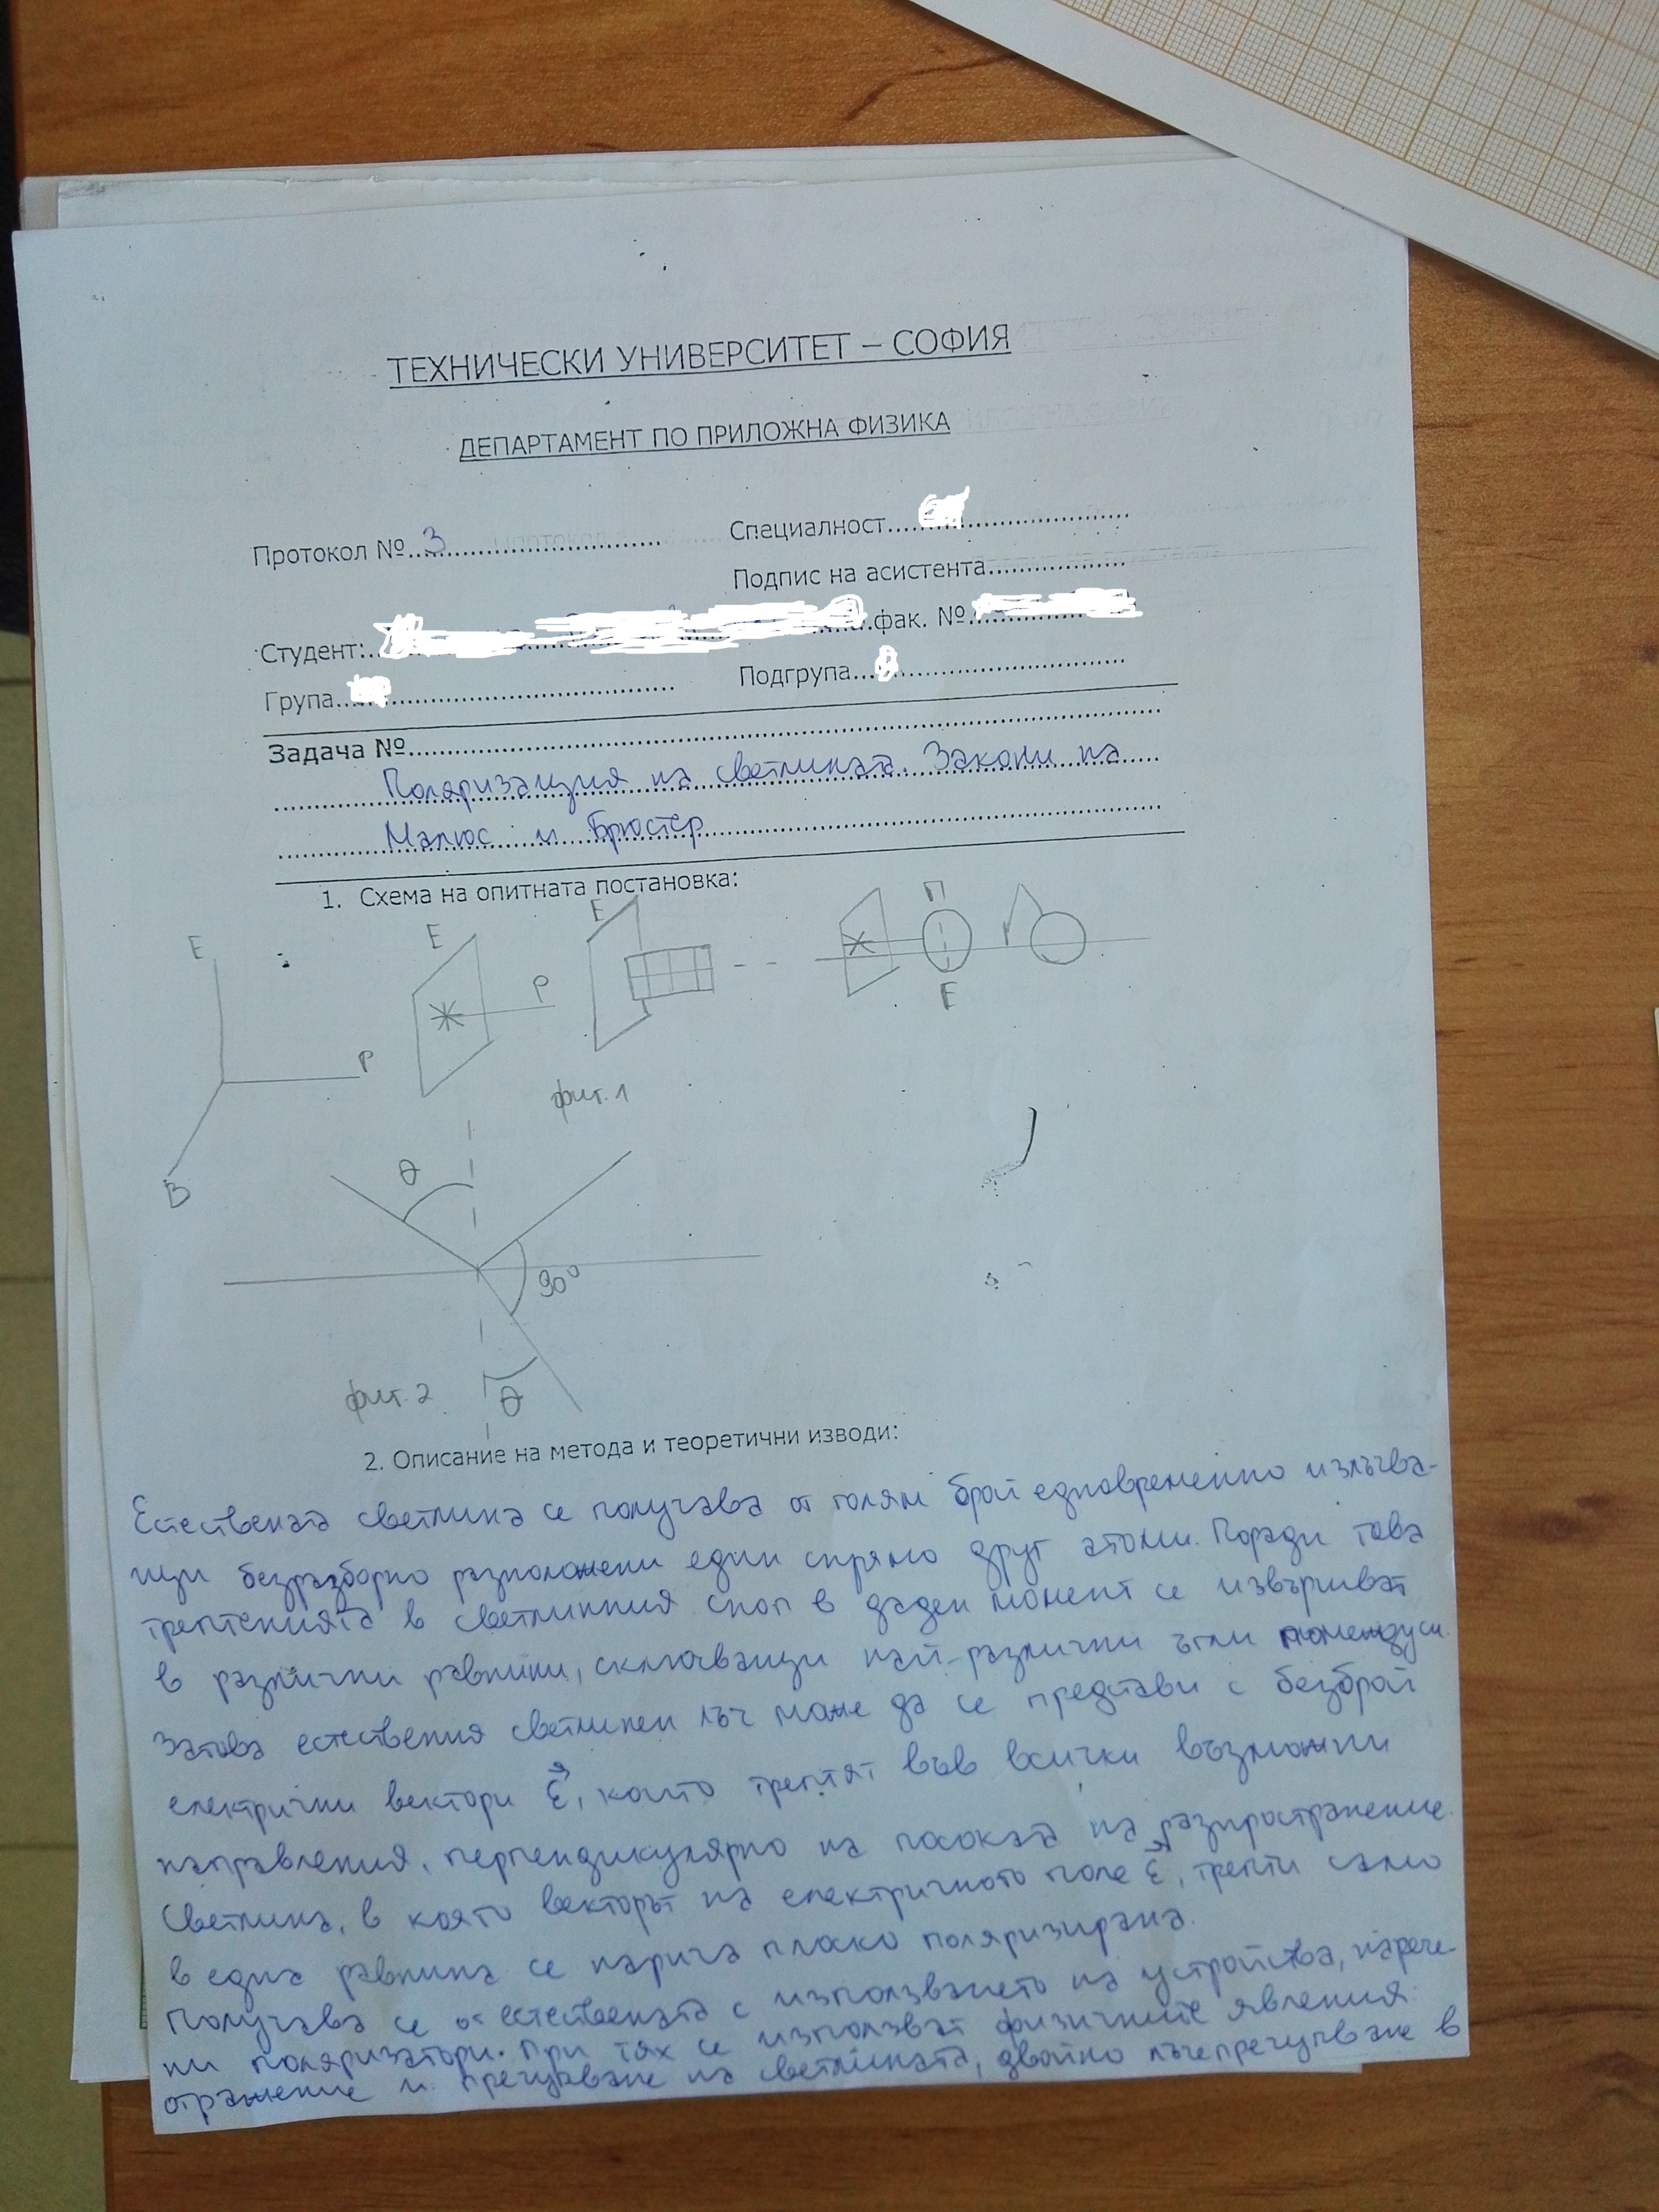 ТЕХНИЧЕСКИ УНИВЕРСИТЕТ – СОФИЯ
ДЕПАРТАМЕНТ ПО ПРИЛОЖНА ФИЗИКА
Протокол № 3 Специалност
Подпис на асистента
Студент: фак. №
Група Подгрупа
Задача №
Поляризация на светлината. Закони на
Малюс и Брюстер
1. Схема на опитната постановка:
E E P E П
P E
B
фиг. 1
θ
90°
фиг. 2 θ
2. Описание на метода и теоретични изводи:
Естествената светлина се получава от голям брой едновременно излъчва-
щи безразборно разположени един спрямо друг атоми. Поради това
трептенията в светлинния сноп в даден момент се извършват
в различни равнини, сключващи най-различни ъгли помежду си.
Затова естествения светлинен лъч може да се представи с безброй
електрични вектори E, които трептят във всички възможни
направления, перпендикулярно на посоката на разпространение.
Светлина, в която векторът на електричното поле E, трепти само
в една равнина се нарича плоско поляризирана.
Получава се от естествената с използването на устройства, нарече-
ни поляризатори. При тях се използват физичните явления:
отражение и пречупване на светлината, двойно лъчепречупване в